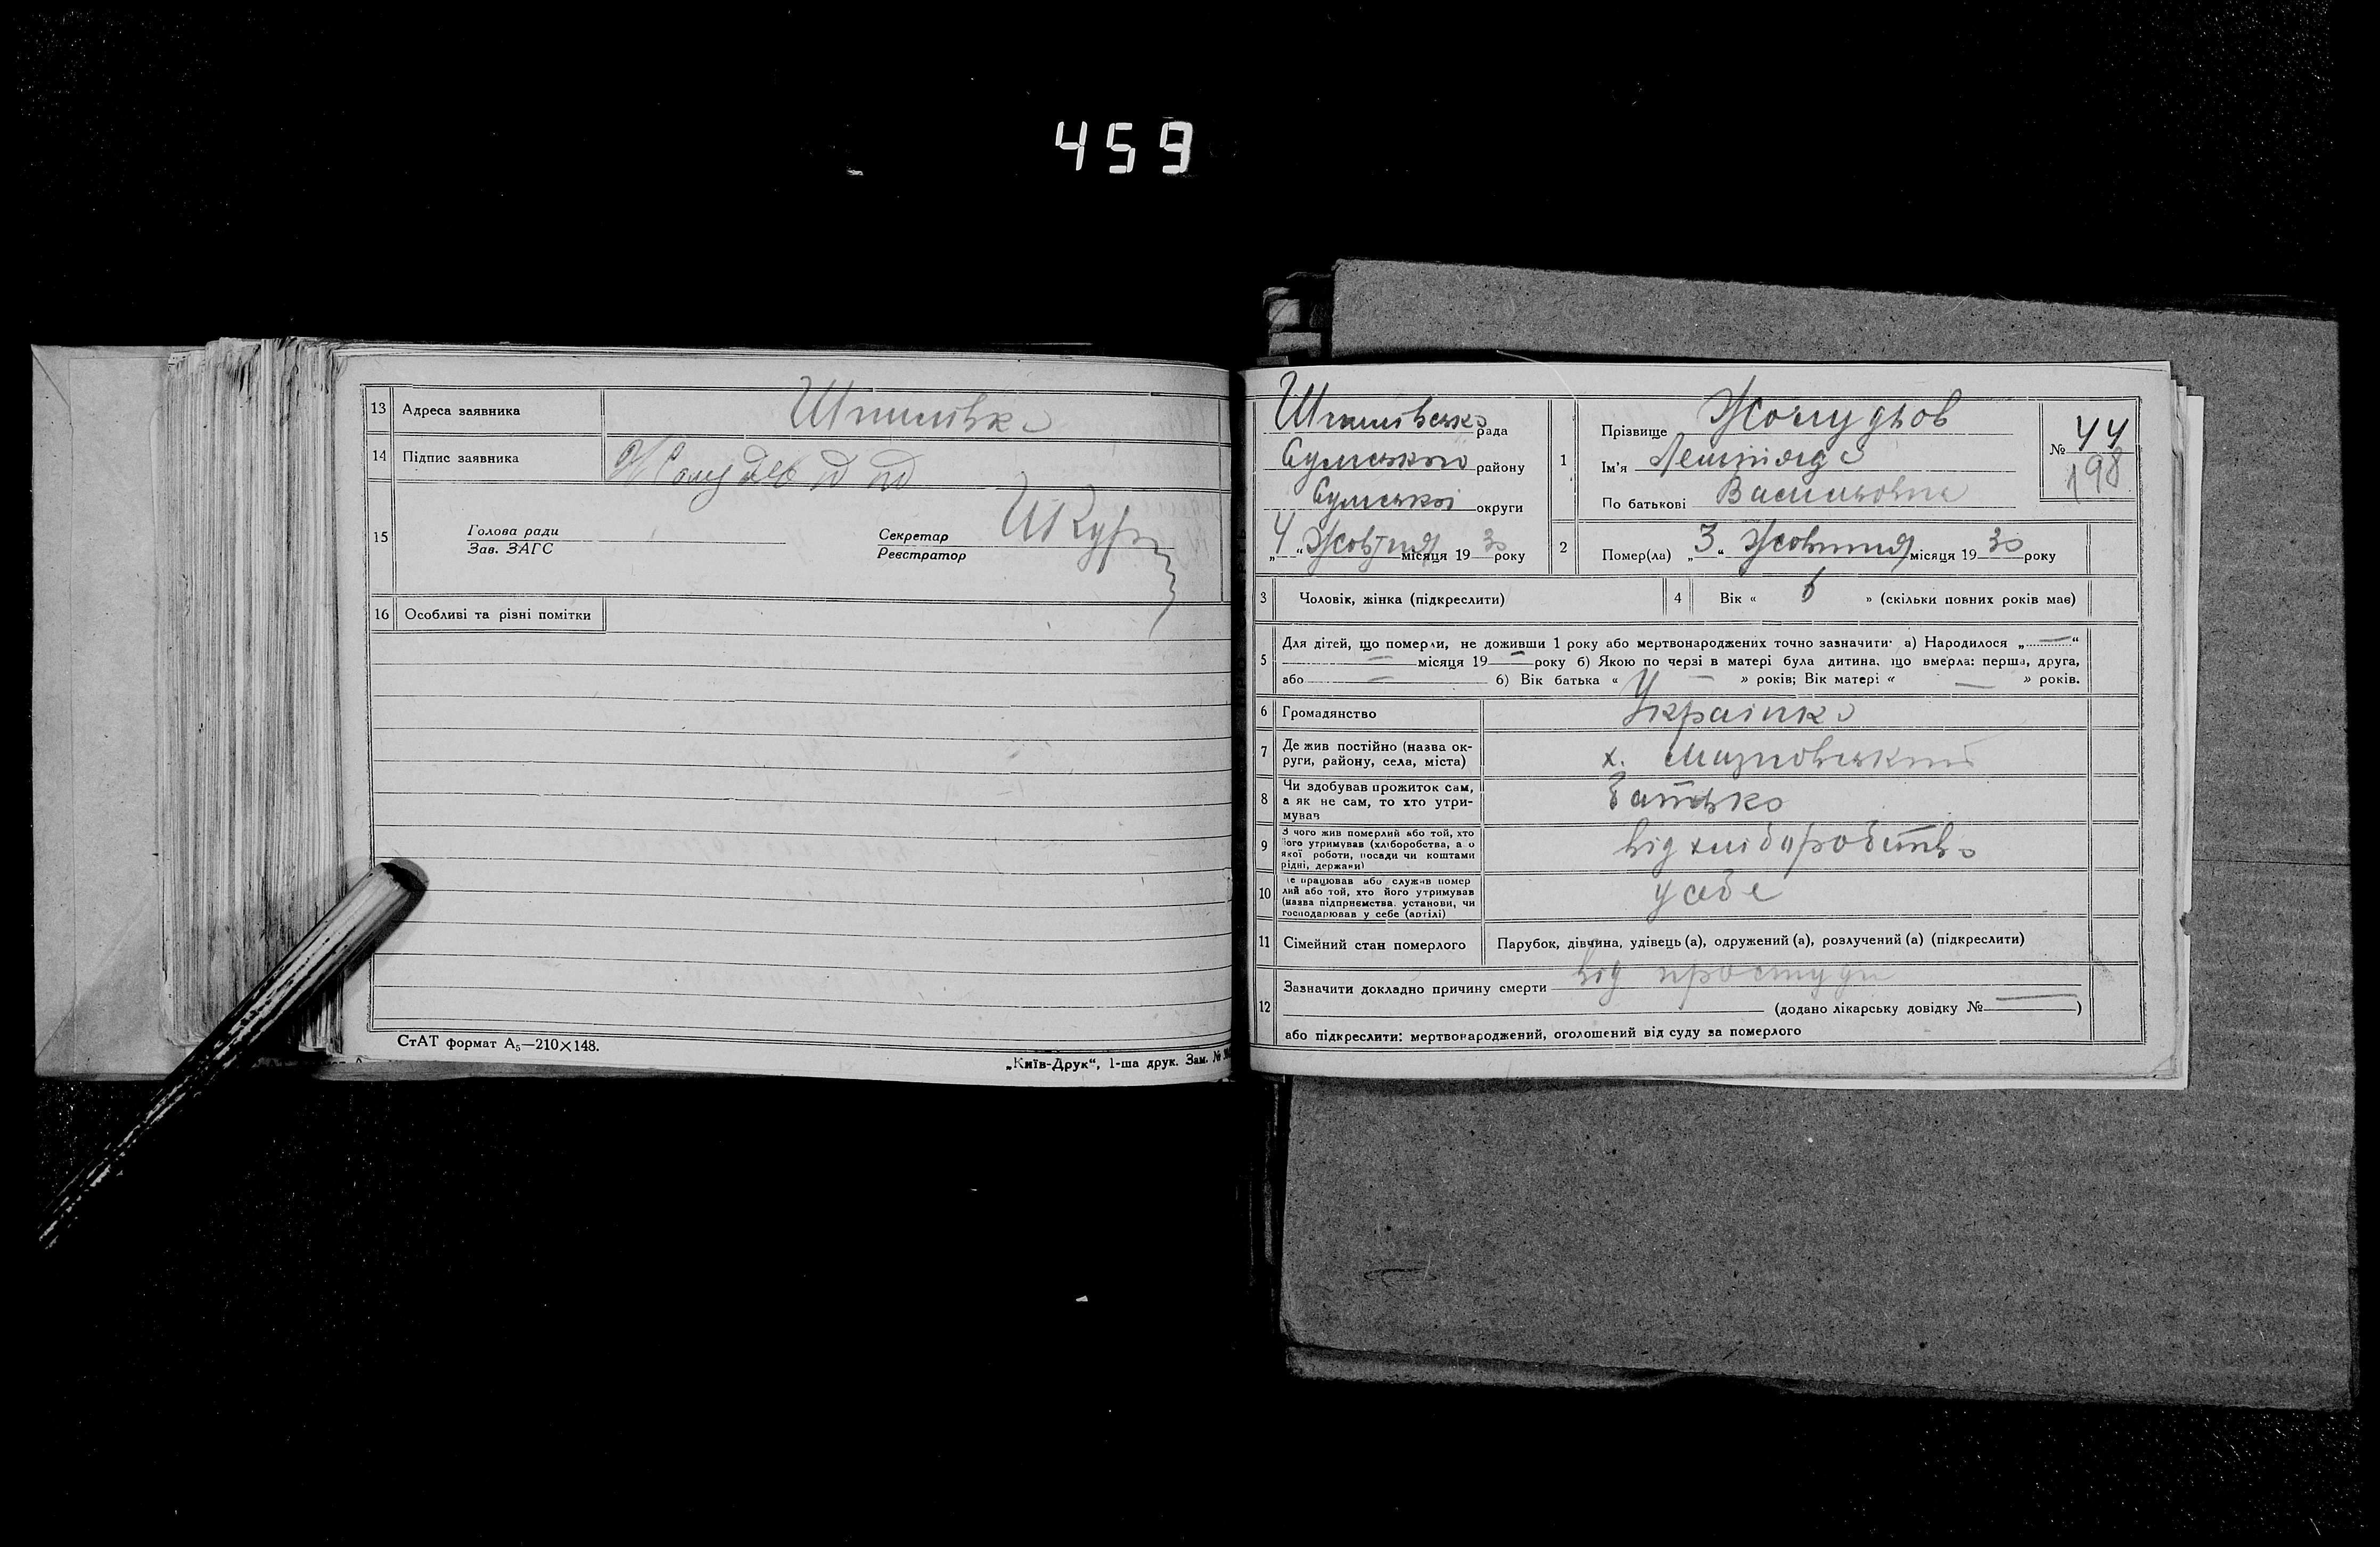 459
13 Адреса заявника Шпилівка
14 Підпис заявника
15 Голова ради
Зав. ЗАГС
Секретар
Реєстратор
16 Особливі та різні помітки
СтАТ формат А5—210×148.
„Київ-Друк“, 1-ша друк. Зам. №
Шпилівська рада
Сумського району
Сумської округи
„4“ Жовтня місяця 1930 року
1 Прізвище Жолудьов
Ім'я
По батькові Васильовна
№ 44
198
2 Помер(ла) „3“ Жовтня місяця 1930 року
3 Чоловік, жінка (підкреслити)
4 Вік « 6 » (скільки повних років має)
5 Для дітей, що померли, не доживши 1 року або мертвонароджених точно зазначити: а) Народилося „—“
— місяця 19— року б) Якою по черзі в матері була дитина, що вмерла: перша, друга,
або — б) Вік батька « — » років; Вік матері « — » років.
6 Громадянство Українка
7 Де жив постійно (назва ок-
руги, району, села, міста) х.
8 Чи здобував прожиток сам,
а як не сам, то хто утри-
мував Батько
9 З чого жив померлий або той, хто
його утримував (хліборобства, а о
якої роботи, посади чи коштами
рідні, держави) від хліборобства
10 Де працював або служив помер
лий або той, хто його утримував
(назва підприємства, установи, чи
господарював у себе (артілі) у себе
11 Сімейний стан померлого Парубок, дівчина, удівець (а), одружений (а), розлучений (а) (підкреслити)
12 Зазначити докладно причину смерти від простуди
(додано лікарську довідку № — )
або підкреслити: мертвонароджений, оголошений від суду за померлого